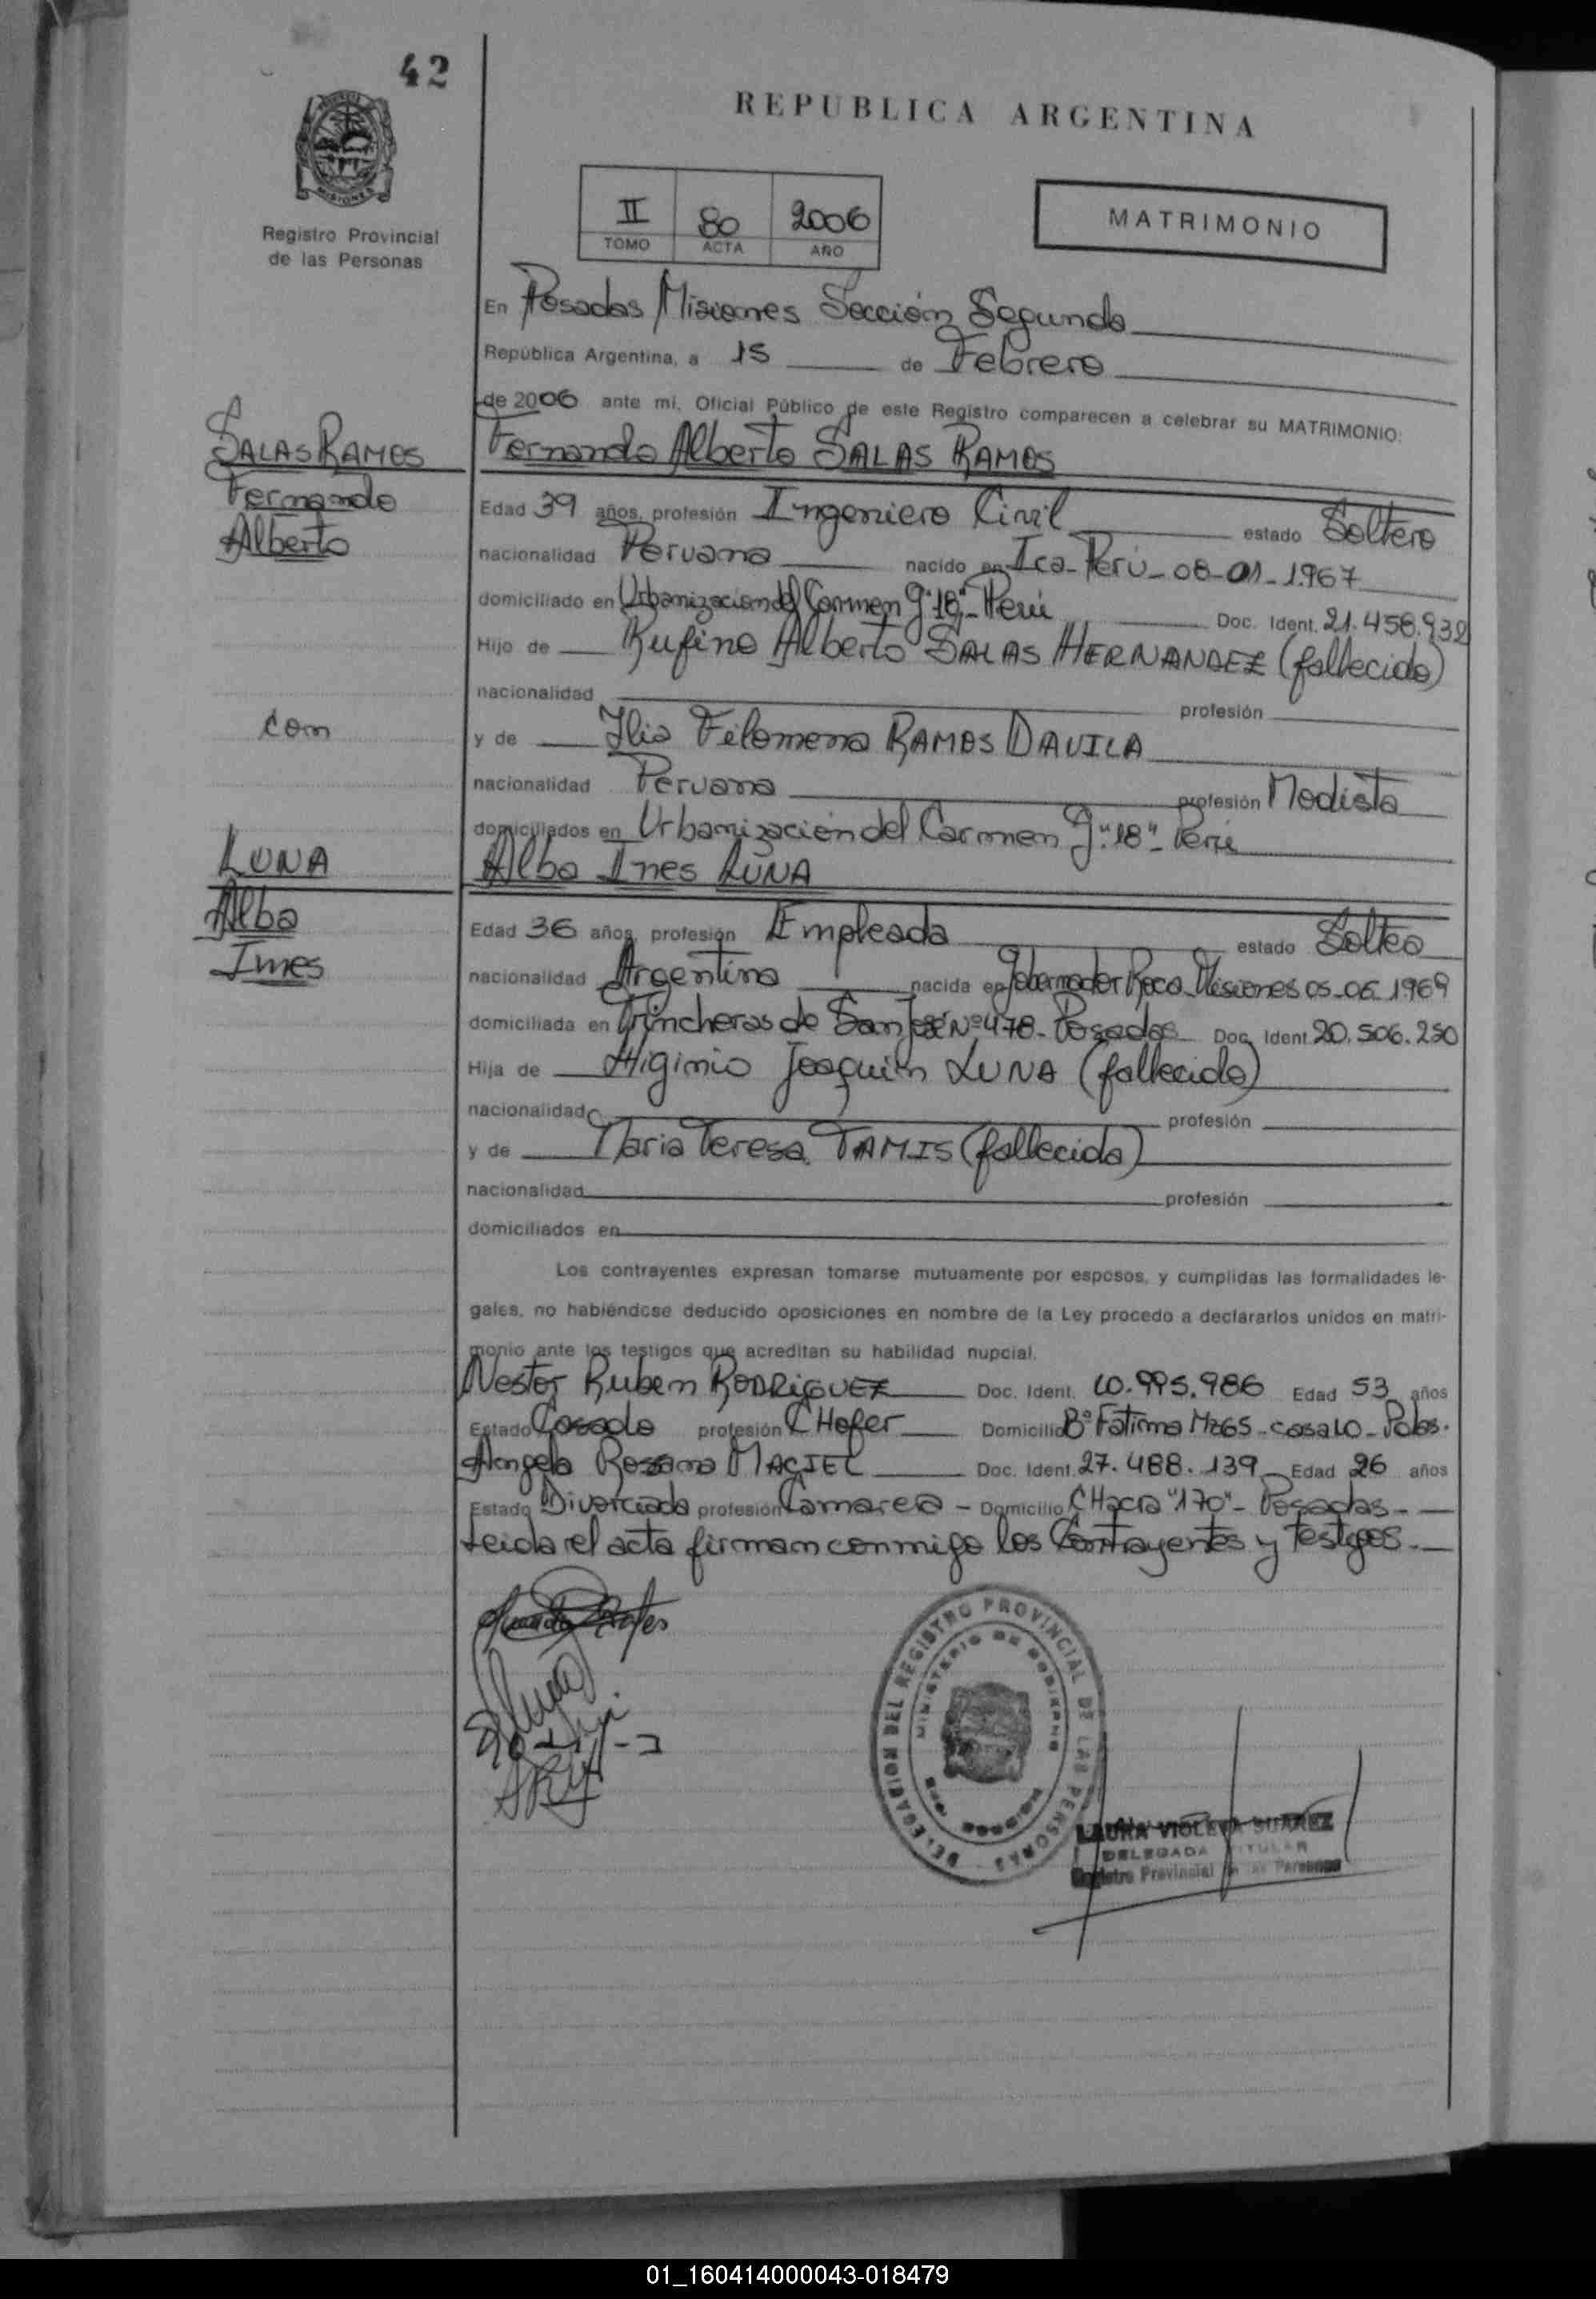 42
REPUBLICA ARGENTINA
Registro Provincial
de las Personas
II 80 2006
TOMO ACTA AÑO
MATRIMONIO
En Posadas Misiones Sección Segunda
República Argentina, a 15 de Febrero
de 2006 ante mi, Oficial Público de este Registro comparecen a celebrar su MATRIMONIO:
SALAS RAMOS
Fernando
Alberto
con
LUNA
Alba
Ines
Fernando Alberto SALAS RAMOS
Edad 39 años, profesión Ingeniero Civil estado Soltero
nacionalidad Peruana nacido en Ica-Perú-08-01-1967
domiciliado en Urbanizacion del Carmen G"18"-Perú Doc. Ident. 21.458.932
Hijo de Rufino Alberto SALAS HERNANDEZ (fallecido)
nacionalidad profesión
y de Ilia Filomena RAMOS DAVILA
nacionalidad Peruana profesión Modista
domiciliados en Urbanización del Carmen G"18"-Perú
Alba Ines LUNA
Edad 36 años, profesión Empleada estado Soltea
nacionalidad Argentina nacida en Gobernador Roca-Misiones 05-06-1969
domiciliada en Trincheras de San José Nº478-Posadas Doc. Ident. 20.506.250
Hija de Higinio Joaquin LUNA (fallecido)
nacionalidad profesión
y de Maria Teresa TAMIS (fallecida)
nacionalidad profesión
domiciliados en
Los contrayentes expresan tomarse mutuamente por esposos, y cumplidas las formalidades le-
gales, no habiéndose deducido oposiciones en nombre de la Ley procedo a declararlos unidos en matri-
monio ante los testigos que acreditan su habilidad nupcial.
Nestor Ruben RODRIGUEZ Doc. Ident. 10.995.986 Edad 53 años
Estado Casado profesión CHofer Domicilio Bº Fatima Mz65-casa 10-Pdas.
Angela Rossana MACIEL Doc. Ident. 27.488.139 Edad 26 años
Estado Divorciada profesión Camarera - Domicilio CHacra "170"-Posadas-
Leida el acta firman conmigo los Contrayentes y Testigos.-
DELEGACION DEL REGISTRO PROVINCIAL DE LAS PERSONAS
MINISTERIO DE GOBIERNO
LAURA VIOLETA SUAREZ
DELEGADA TITULAR
Registro Provincial de las Personas
01_160414000043-018479